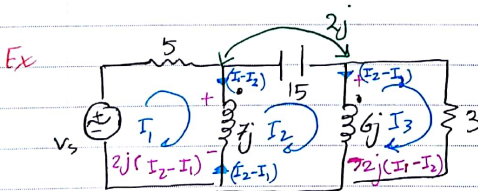 2j
Ex
5
(I₁-I₂)
15
(I₂-I₃)
+
+
Vs
I₁
7j
I₂
6j
I₃
3
2j(I₂-I₁)
-
(I₂-I₁)
2j(I₁-I₂)